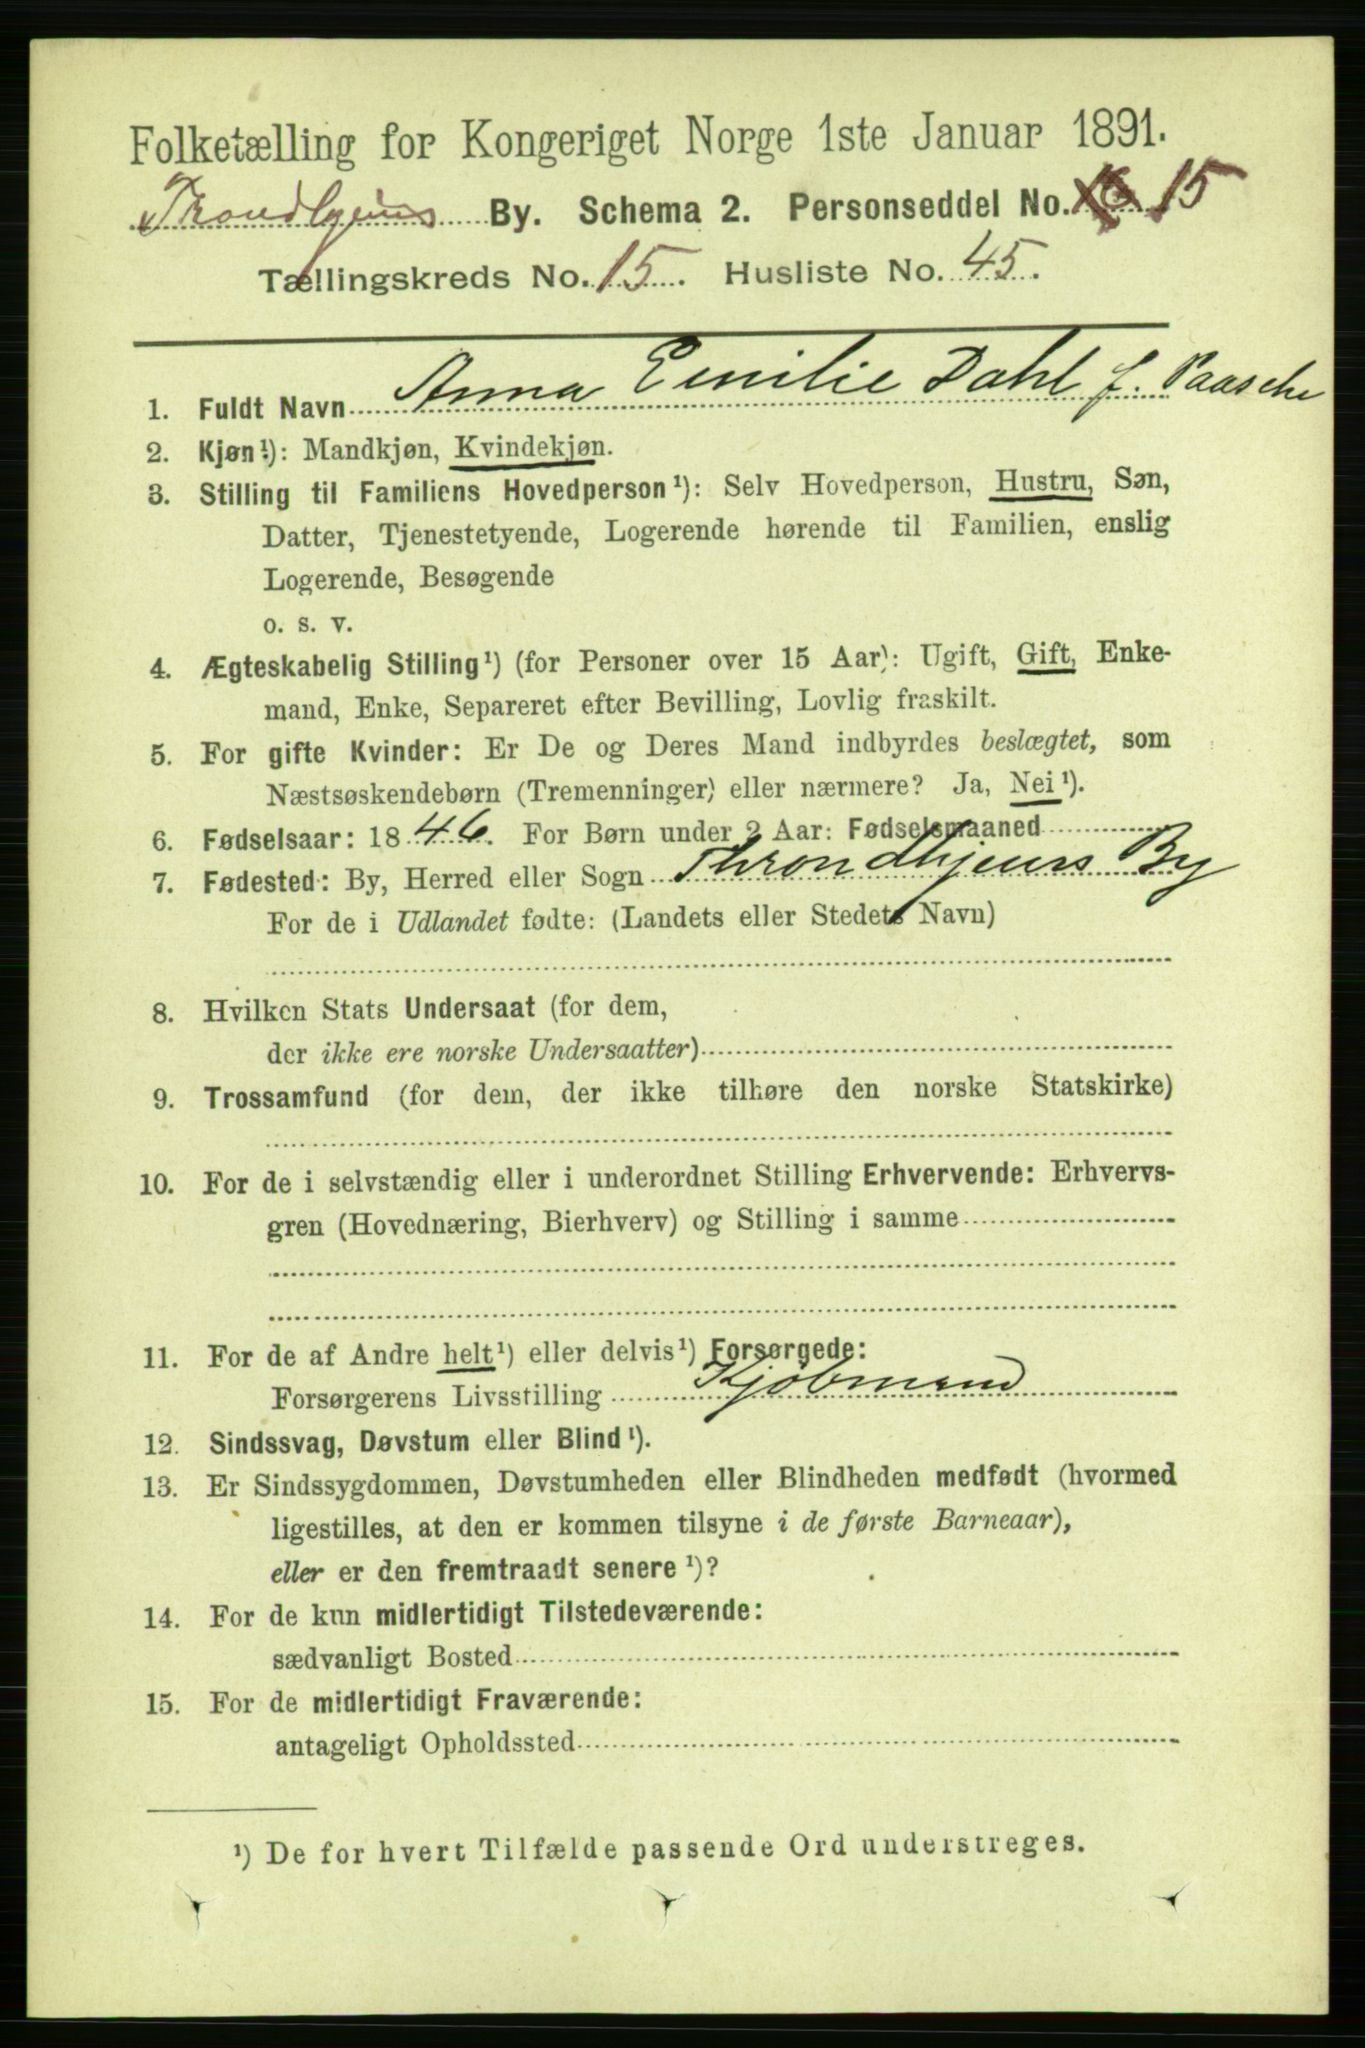 Folketælling for Kongeriget Norge 1ste Januar 1891.
Trondhjems By. Schema 2. Personseddel No. 15
Tællingskreds No. 15. Husliste No. 45.
1. Fuldt Navn Anna Emilie Dahl f. Paasche
2. Kjøn¹): Mandkjøn, Kvindekjøn.
3. Stilling til Familiens Hovedperson¹): Selv Hovedperson, Hustru, Søn,
Datter, Tjenestetyende, Logerende hørende til Familien, enslig
Logerende, Besøgende
o. s. v.
4. Ægteskabelig Stilling¹) (for Personer over 15 Aar): Ugift, Gift, Enke-
mand, Enke, Separeret efter Bevilling, Lovlig fraskilt.
5. For gifte Kvinder: Er De og Deres Mand indbyrdes beslægtet, som
Næstsøskendebørn (Tremenninger) eller nærmere? Ja, Nei¹).
6. Fødselsaar: 1846. For Børn under 2 Aar: Fødselsmaaned
7. Fødested: By, Herred eller Sogn Throndhjems By
For de i Udlandet fødte: (Landets eller Stedets Navn)
8. Hvilken Stats Undersaat (for dem,
der ikke ere norske Undersaatter)
9. Trossamfund (for dem, der ikke tilhøre den norske Statskirke)
10. For de i selvstændig eller i underordnet Stilling Erhvervende: Erhvervs-
gren (Hovednæring, Bierhverv) og Stilling i samme
11. For de af Andre helt¹) eller delvis¹) Forsørgede:
Forsørgerens Livsstilling Kjöbmand
12. Sindssvag, Døvstum eller Blind¹).
13. Er Sindssygdommen, Døvstumheden eller Blindheden medfødt (hvormed
ligestilles, at den er kommen tilsyne i de første Barneaar),
eller er den fremtraadt senere¹)?
14. For de kun midlertidigt Tilstedeværende:
sædvanligt Bosted
15. For de midlertidigt Fraværende:
antageligt Opholdssted
¹) De for hvert Tilfælde passende Ord understreges.